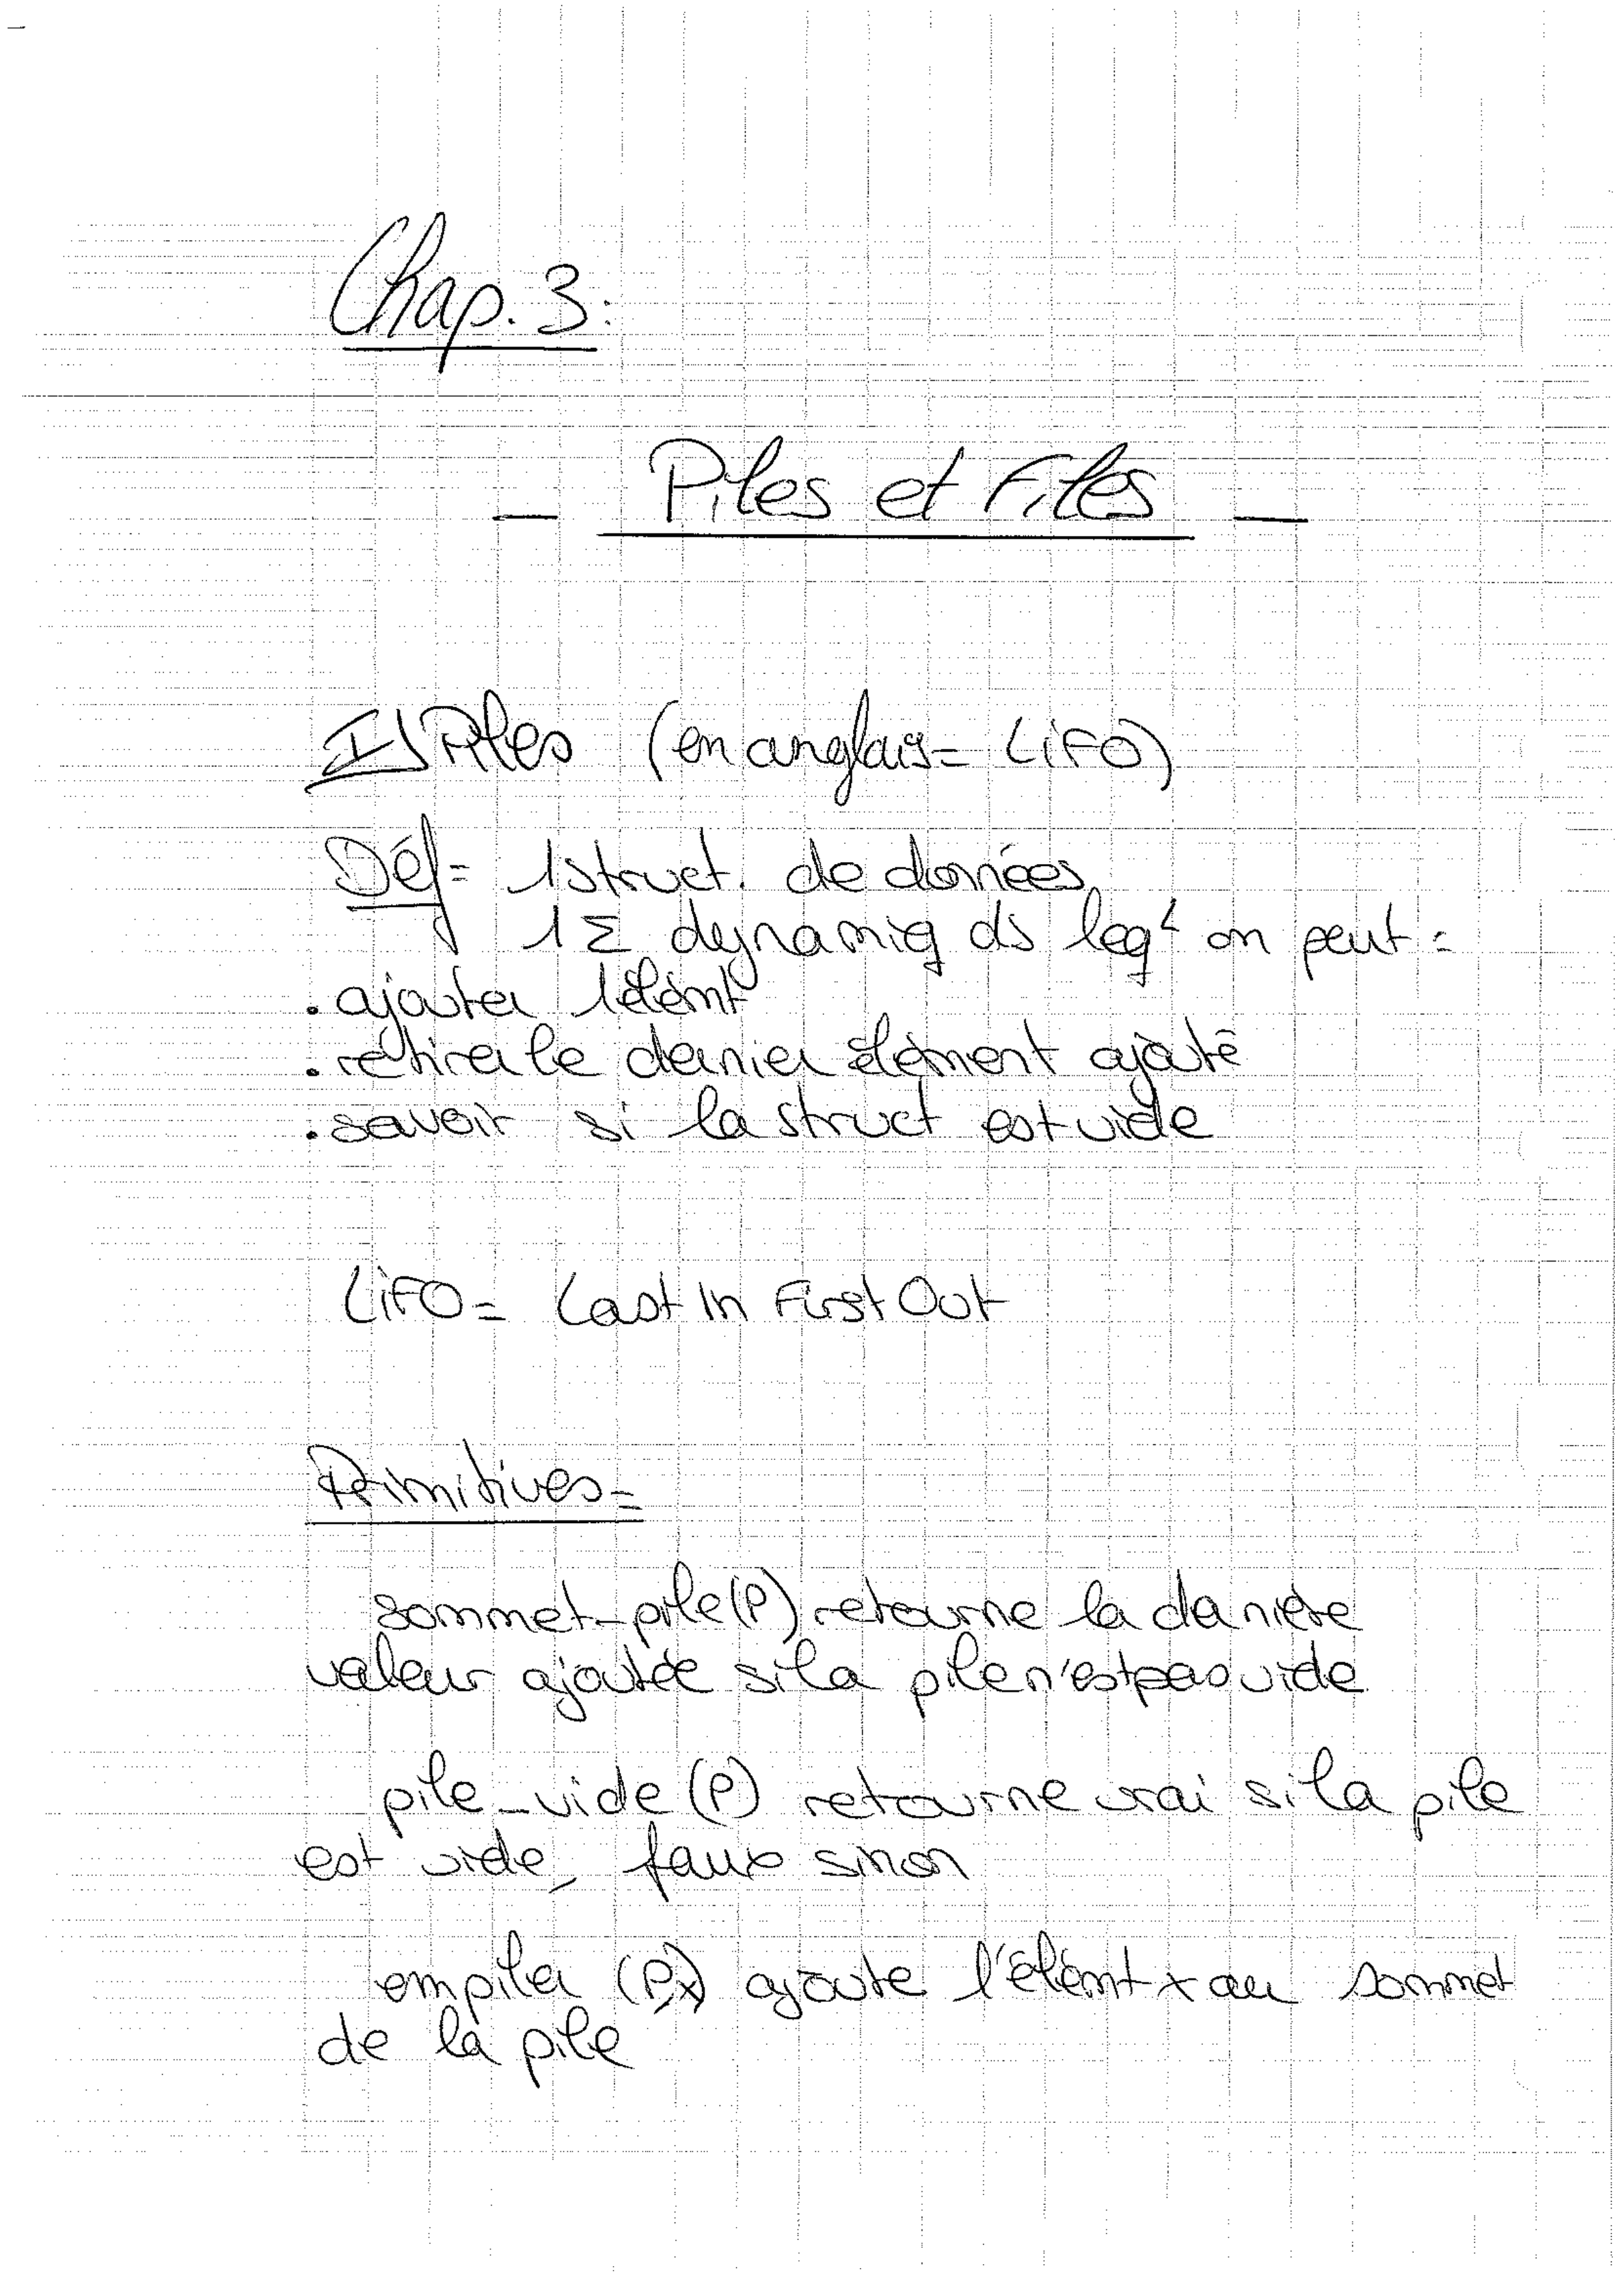 Chap. 3:
— Piles et Files —
I) Piles (en anglais = LiFO)
Déf = 1 struct. de données,
1 Σ dynamiq ds leqL on peut =
. ajouter 1 élémt
. retirer le dernier élément ajouté
. savoir si la struct est vide
LiFO = Last In First Out
Primitives =
sommet_pile(P) retourne la dernière
valeur ajoutée si la pile n'est pas vide
pile_vide(P) retourne vrai si la pile
est vide, faux sinon
empiler (P,x) ajoute l'élémt x au sommet
de la pile